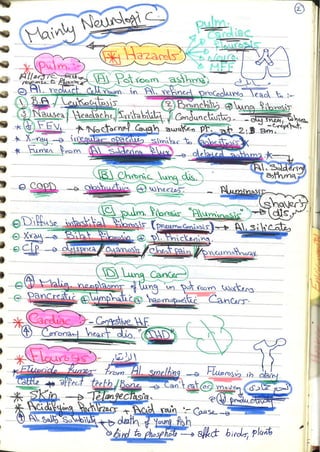 2
Mainly Neurologic.
* Hazards
pulm.
Cardiac
Flurosis
Neuro
* pulm:
(A) Potroom asthma:
Al. reduct cell room in Al. refined procedures lead to :-
① B.A / Leukocytosis ② Bronchitis lung fibrosis
③ Nausea / Headache, Irritability / Conductivitis
↓ FEV1 * Nocturnal Cough awaken Pt. at 2:3 am.
* X-ray → irregular opacities similar to asbestosis
* Fumes from Al soldering Flux → delayed asthma
Al. soldering asthma
(B) Chronic lung dis.
COPD → obstructive wheezes.
Aluminosis
(C) pulm Fibrosis "Aluminosis"
Shaver's dis,
Diffuse interstitial fibrosis (pneumoconiosis) → Al silicates
Xray → pl. thickening
C/P → dyspnea / cyanosis / Chest pain / pneumothorax
(D) Lung Cancer
↑ Malig. neoplasms of lung in potroom workers
pancreatic lymphatic haemopoietic Cancers.
* Cardiac - Congestive HF
↑ Coronary heart dis. (IHD)
* Flourosis
* Fluoride fumes from Al smelting → Fluorosis in dairy
Cattle → affect teeth/Bone → Can't eat or move → ↓ productivity
* SKin → Telangectasia
* Acidifying Fertilizers + Acid rain :- Cause →
↑ Al salts solubility → death of young fish
→ bind to phosphate → affect birds, plants